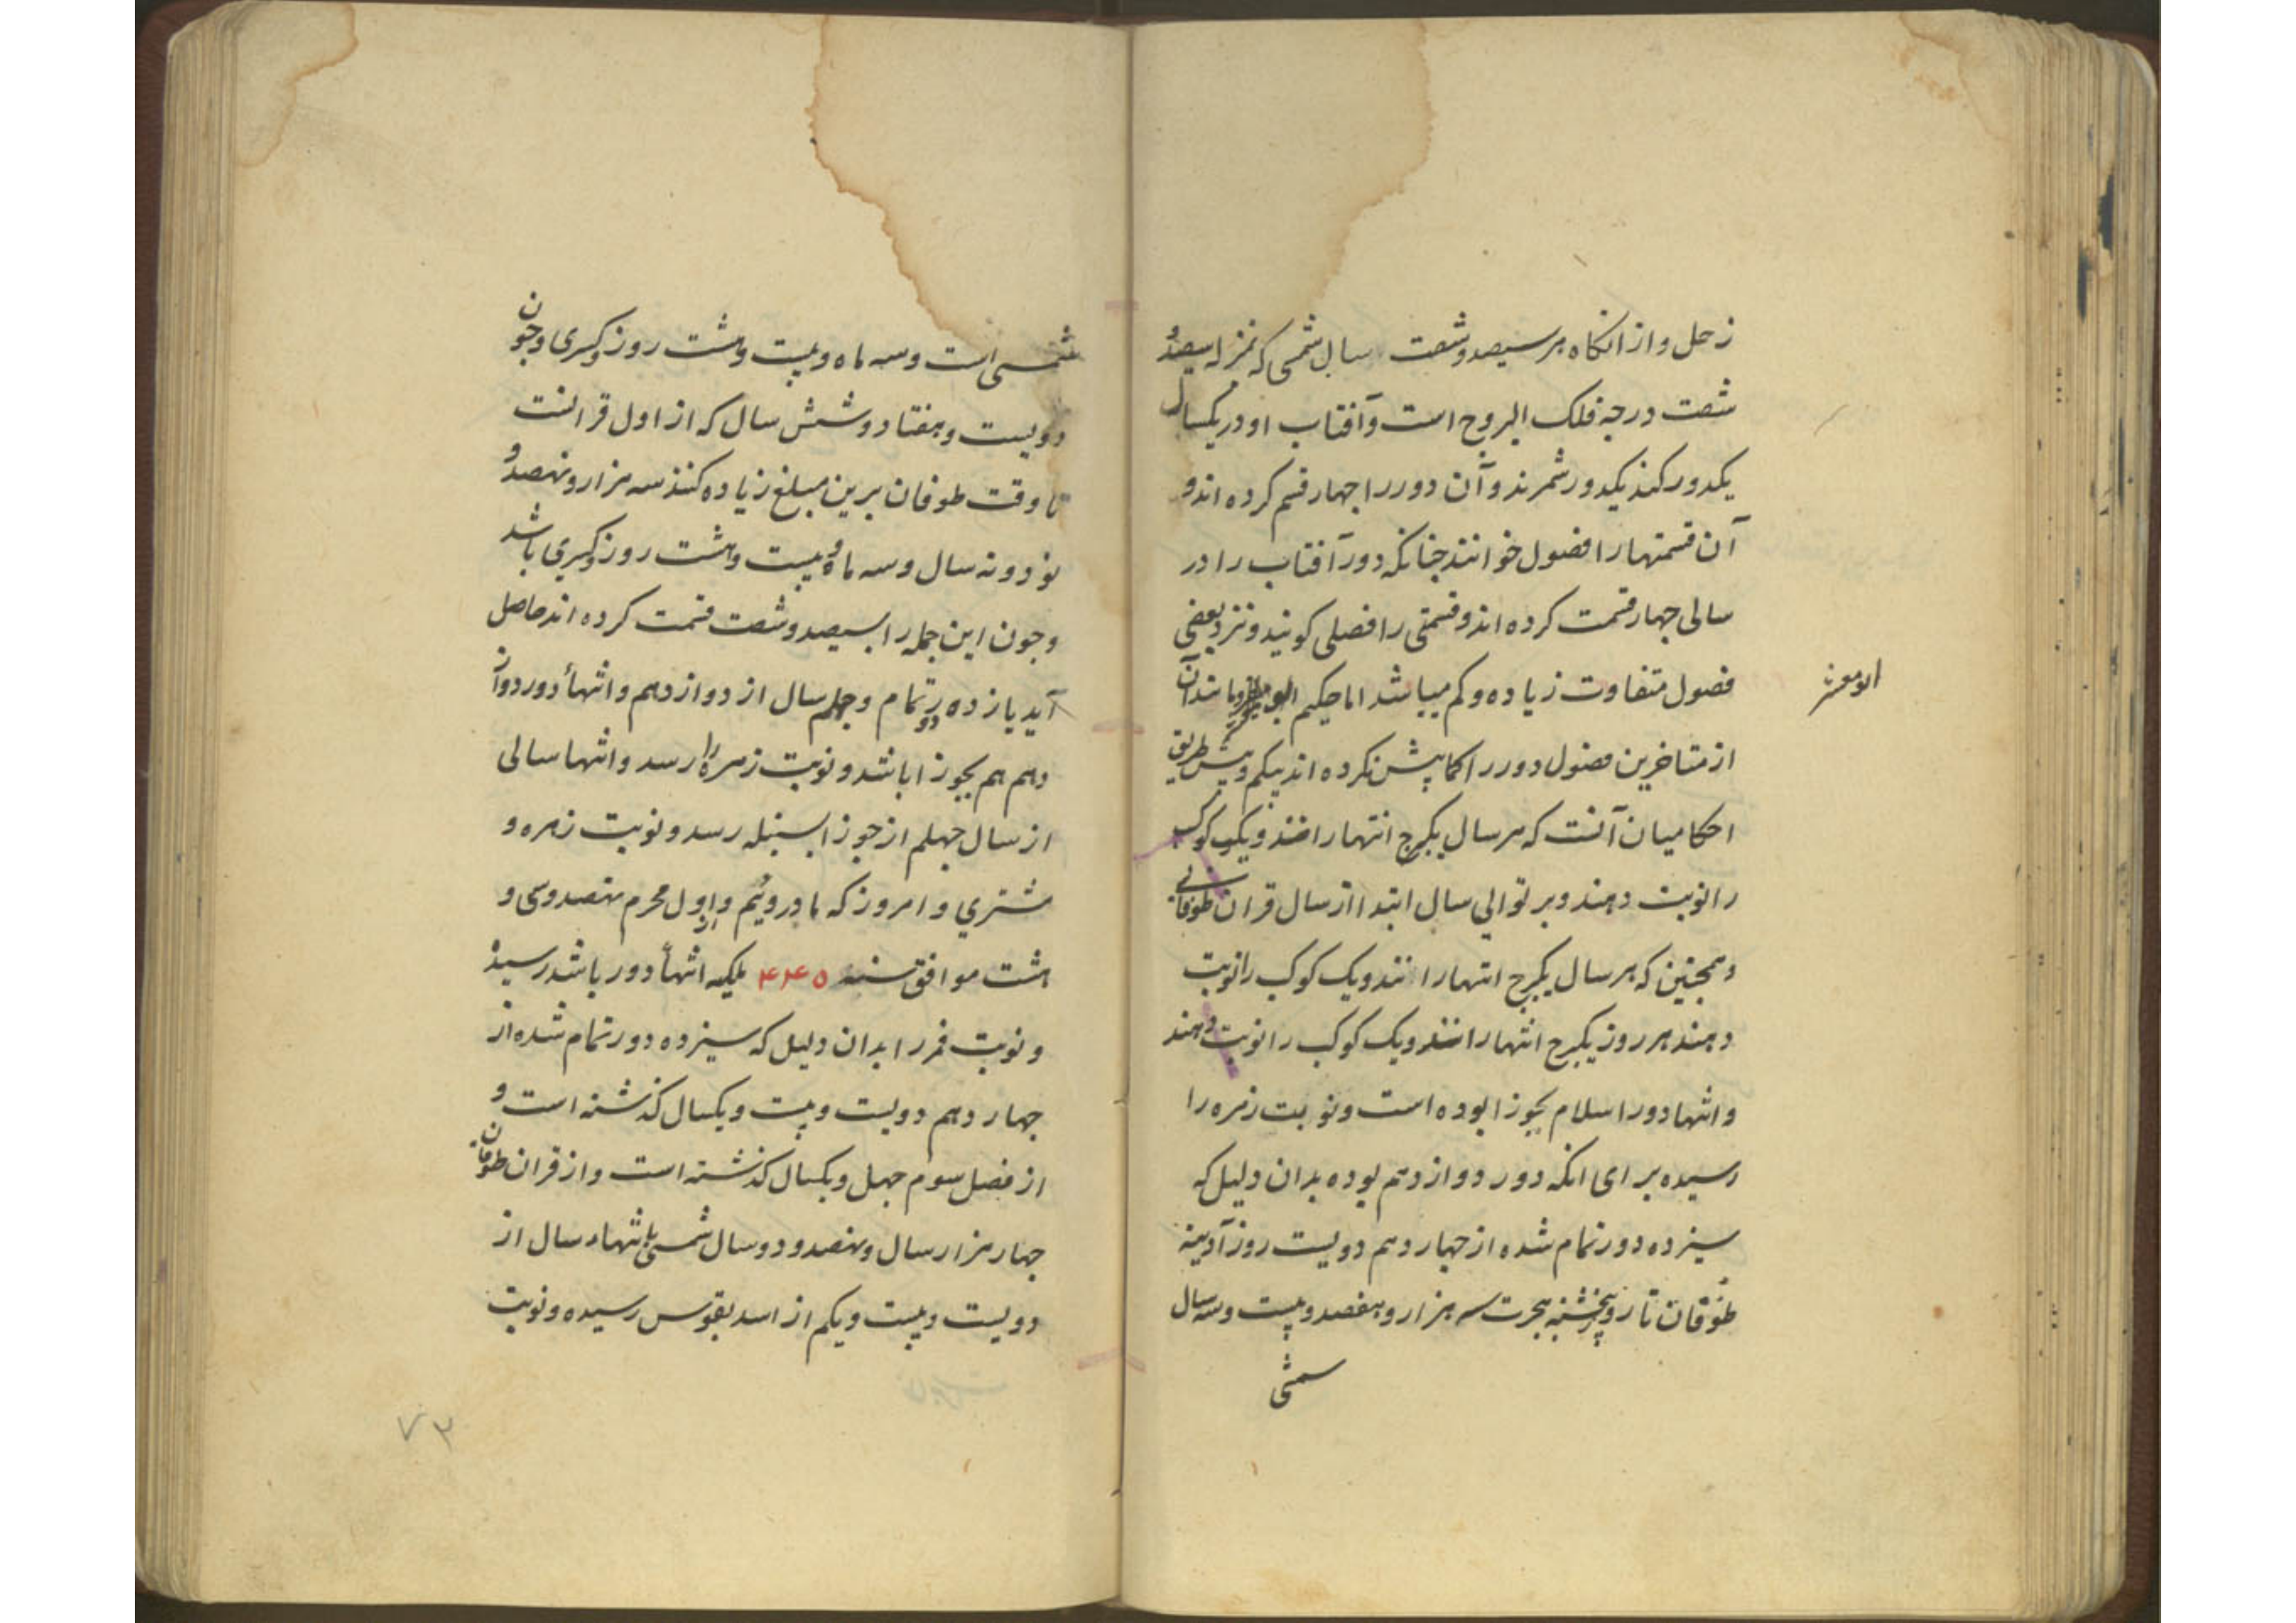 زحل و از انکاه هر سیصد و شصت سال شمسی که بمنزله سیصد و
شصت درجه فلک البروج است و آفتاب او در یکسال
یکدور کند یکدور شمرند و آن دور را چهار قسم کرده اند و
آن قسمتها را فصول خوانند چنانکه دور آفتاب را در
سالی چهار قسمت کرده اند و قسمتی را فصلی کویند و نزد بعضی
فصول متفاوت زیاده و کم میباشد اما حکیم
ابومعشر
از متاخرین فصول دور را کمابیش نکرده اند پیکم و بیش طریق
احکامیان آنست که هر سال یکبرج انتها رانند و یک کوکب
را نوبت دهند و بر توالی سال ابتدا از سال قران طوفانی
و همچنین که هر سال یکبرج انتها رانند و یک کوکب را نوبت
دهند هر روز یکبرج انتها رانند و یک کوکب را نوبت دهند
و انتها دور اسلام بجوزا بوده است و نوبت زهره را
رسیده برای انکه دور دوازدهم بوده بدان دلیل که
سیزده دور تمام شده از چهاردهم دویست روز آدینه
طوفان تا روز پنجشنبه هجرت سه هزار و هفصد و بیست و سه سال
شمسی
شمسی است و سه ماه و بیست و هشت روز و کسری و چون
دویست و هفتاد و شش سال که از اول قرانست
تا وقت طوفان برین مبلغ زیاده کنند سه هزار و نهصد و
نود و نه سال و سه ماه و بیست و هشت روز و کسری باشد
و چون این جمله را بسیصد و شصت قسمت کرده اند حاصل
آید یازده دور تمام و چهلم سال از دوازدهم و انتهأ دور دواز
دهم هم بجوزا باشد و نوبت زهره را رسد و انتها سالی
از سال چهلم از جوزا بسنبله رسد و نوبت زهره و
مشتری و امروز که ما دروئیم و اول محرم نهصد و سی و
هشت موافق سنه ۴۴۵ یلکیه انتهأ دور باشد رسید
و نوبت قمر را بدان دلیل که سیزده دور تمام شده از
چهاردهم دویست و بیست و یکسال کذشته است و
از فصل سوم چهل و یکسال کذشته است و از قران طوفان
چهار هزار سال و نهصد و دو سال شمسی باشد انتها سال از
دویست و بیست و یکم از اسد بقوس رسیده و نوبت
۷۳